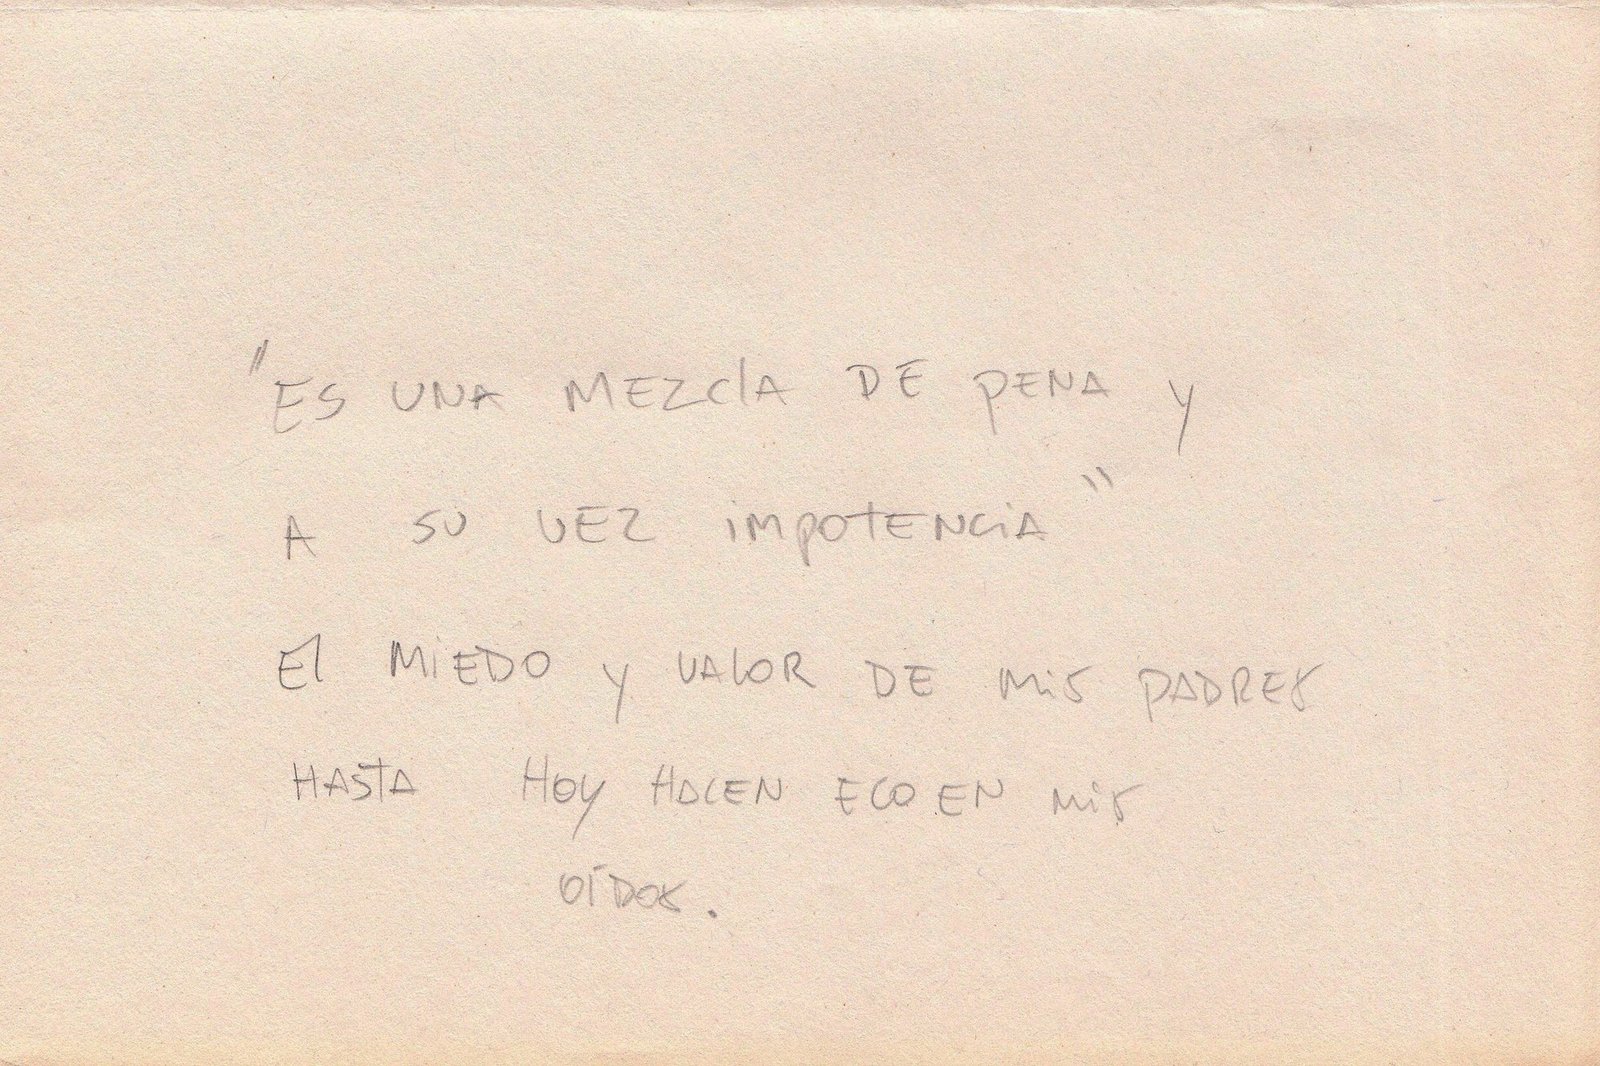 "ES UNA MEZClA DE PENA y
A SU VEZ iMPOTENCiA"
El MiEDO y VAlOR DE Mis PADRES
HASTA HOY HACEN ECO EN Mis
OÍDOS.